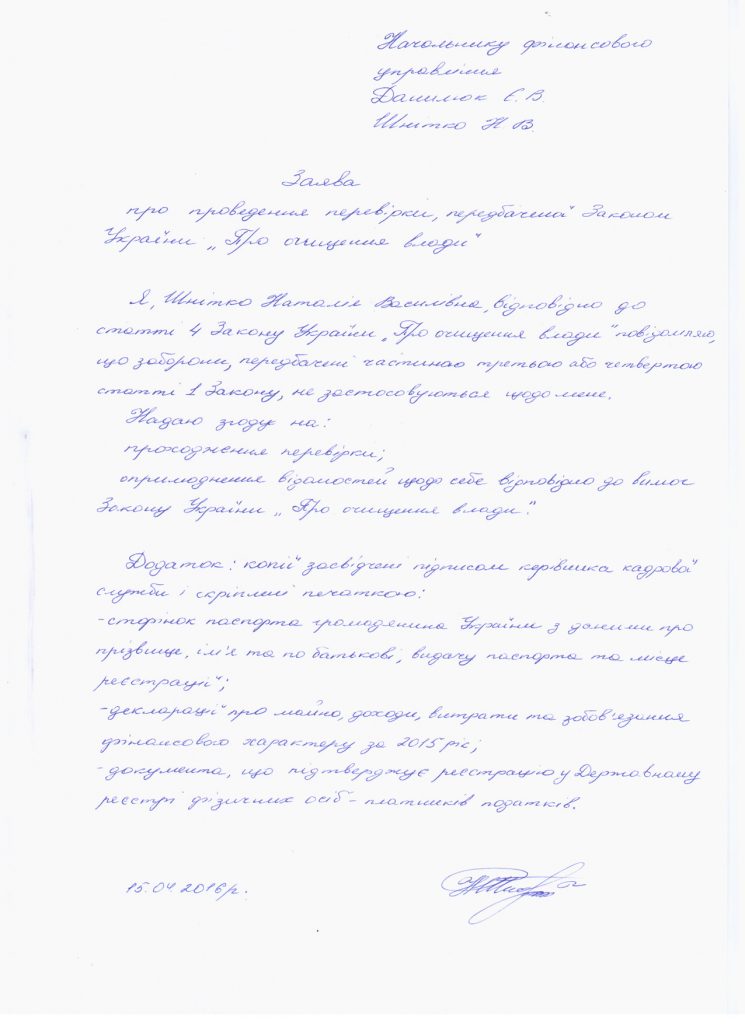 Начальнику фінансового
управління
Данилюк Є. В.
Шнітко Н. В.
Заява
про проведення перевірки, передбаченої Законом
України „Про очищення влади"
Я, Шнітко Наталія Василівна, відповідно до
статті 4 Закону України „Про очищення влади" повідомляю,
що заборони, передбачені частиною третьою або четвертою
статті 1 Закону, не застосовуються щодо мене.
Надаю згоду на:
проходження перевірки;
оприлюднення відомостей щодо себе відповідно до вимог
Закону України „Про очищення влади".
Додаток: копії засвідчені підписом керівника кадрової
служби і скріплені печаткою:
- сторінок паспорта громадянина України з даними про
прізвище, ім'я та по батькові, видачу паспорта та місце
реєстрації;
- декларації про майно, доходи, витрати та зобов'язання
фінансового характеру за 2015 рік;
- документа, що підтверджує реєстрацію у Державному
реєстрі фізичних осіб - платників податків.
15.04.2016 р.